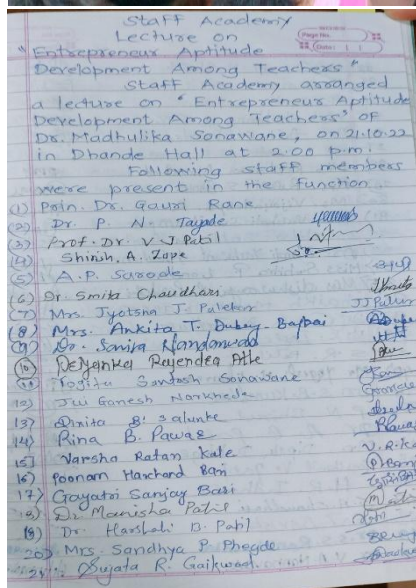 Staff Academy
Lecture on
Page No.
Date: / /
"Entrepreneur Aptitude
Development Among Teachers"
Staff Academy arranged
a lecture on "Entrepreneur Aptitude
Development Among Teachers" of
Dr. Madhulika Sonawane, on 21.10.22
in Dhande Hall at 2.00 p.m.
Following staff members
were present in the function.
(1) Prin. Dr. Gauri Rane
(2) Dr. P. N. Tayade
(3) Prof. Dr. V. J. Patil
(4) Shirish, A. Zope
(5) A. P. Sarode
(6) Dr. Smita Chaudhari
(7) Mrs. Jyotsna J. Palekar
(8) Mrs. Ankita T. Dubey-Bajpai
(9) Dr. Sarita Nandanwad
(10) Rajendra
(11) Yogita Santosh Sonawane
12) Ganesh Narkhede
13) B. Salunke
14) Rina B. Pawar
15) Varsha Ratan Kale
16) Poonam Harchand Bari
17) Gayatri Sanjay Bari
18) Dr. Manisha Patil
19) Dr. Harshali B. Patil
20) Mrs. Sandhya P. Phegde
21. Sujata R. Gaikwad